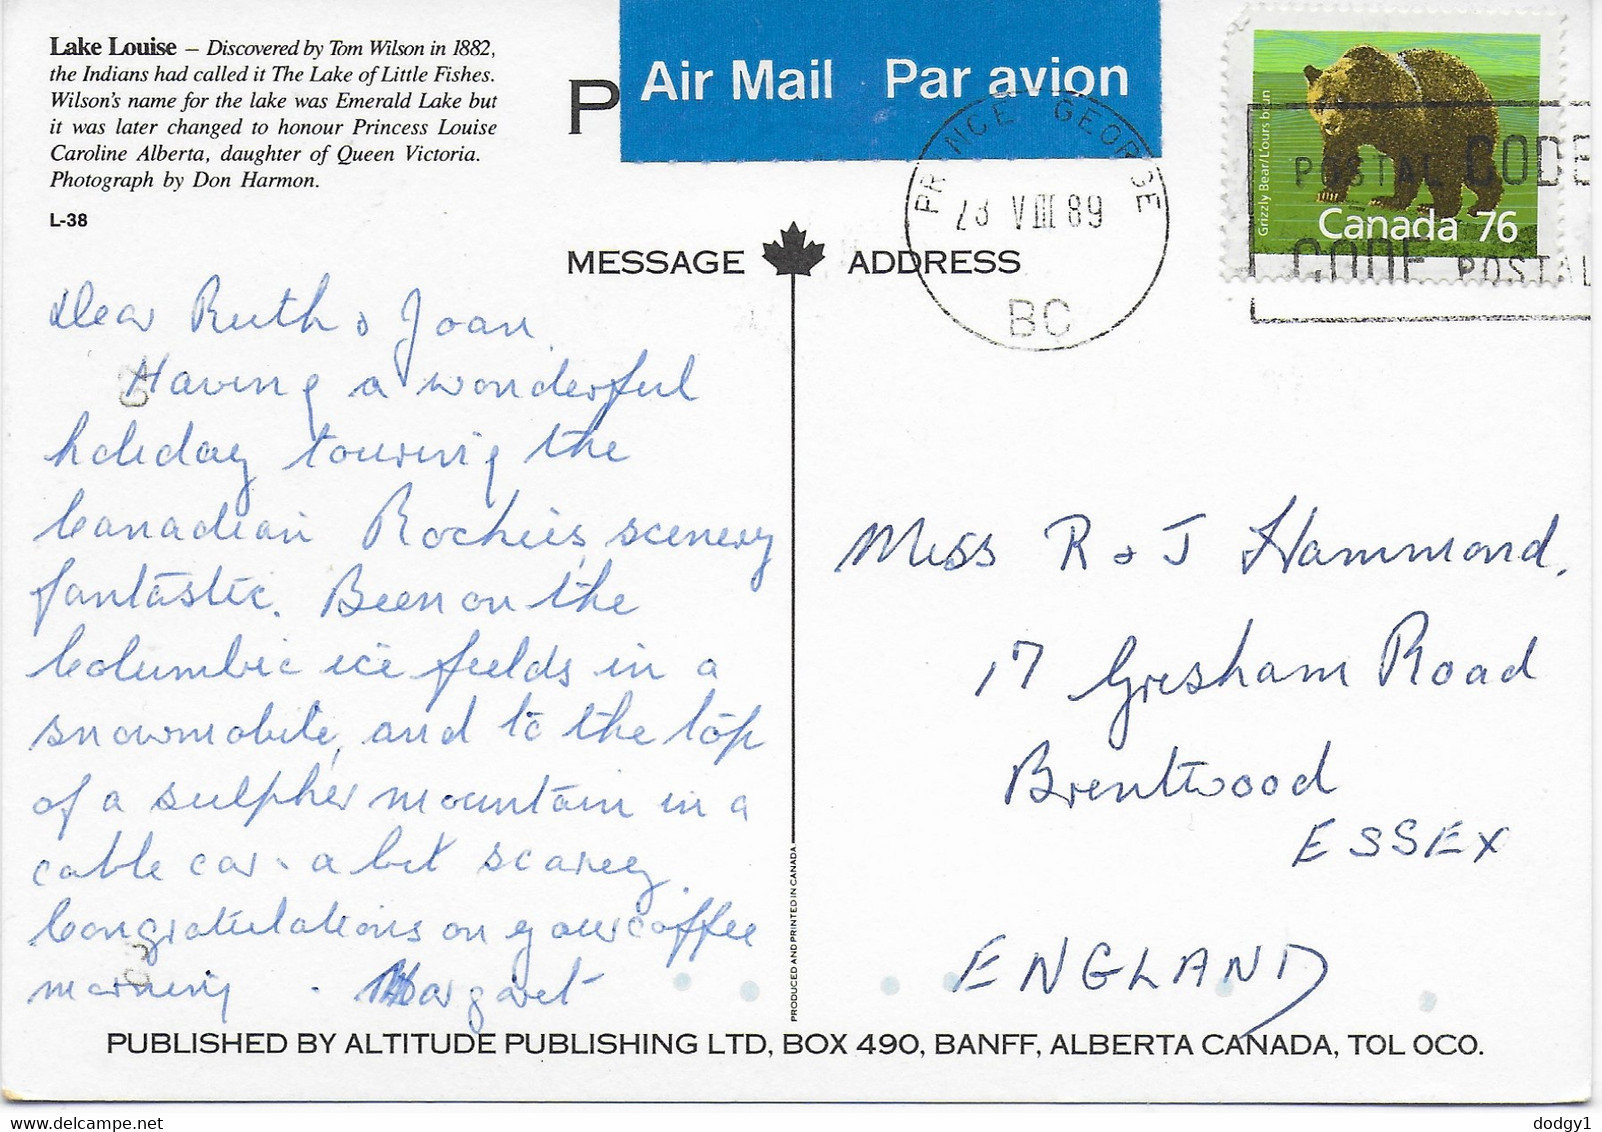 Lake Louise – Discovered by Tom Wilson in 1882,
the Indians had called it The Lake of Little Fishes.
Wilson's name for the lake was Emerald Lake but
it was later changed to honour Princess Louise
Caroline Alberta, daughter of Queen Victoria.
Photograph by Don Harmon.
L-38
P
Air Mail Par avion
PRINCE GEORGE
VIII 89
BC
Grizzly Bear/L'ours brun
Canada 76
POSTAL CODE
CODE POSTAL
MESSAGE ADDRESS
Dear Ruth & Joan,
Having a wonderful
holiday touring the
Canadian Rockies, scenery
fantastic. Been on the
Columbic ice fields in a
snowmobile, and to the top
of a sulpher mountain in a
cable car - a bit scarey.
Congratulations on your coffee
morning. Margaret
Miss R & J Hammond,
17 Gresham Road
Brentwood
ESSEX
ENGLAND
PRODUCED AND PRINTED IN CANADA
PUBLISHED BY ALTITUDE PUBLISHING LTD, BOX 490, BANFF, ALBERTA CANADA, TOL OCO.
delcampe.net
dodgy1